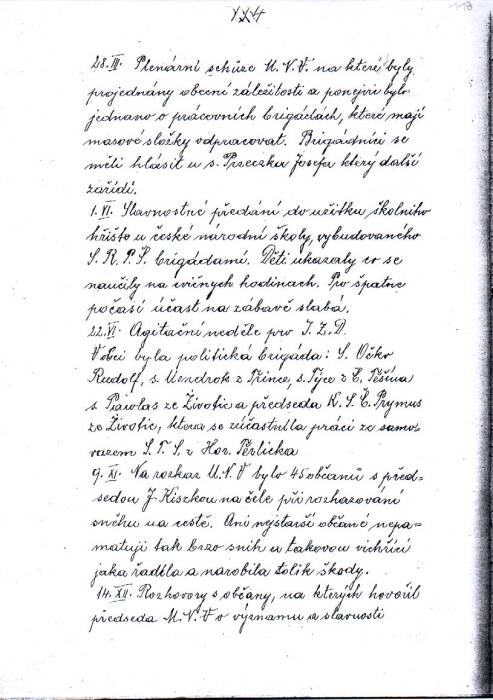 114
28.III. Plenární schůze M.N.V. na které byly
projednány obecní záležitosti a ponejvíc bylo
jednano o pracovních brigádách, které mají
masové složky odpracovat. Brigádníci se
měli hlásit u s. Przeczka Josefa který další
zařídí.
1.VI. Slavnostné předání do užitku školního
hřišto u české národní školy, vybudovaného
S.R.P.Š. brigádami. Děti ukazaly co se
naučily na cvičných hodinach. Pro špatne
počasí účast na zábavě slabá.
22.VI. Agitační neděle pro J.Z.D.
V obci byla politická brigáda: S. Očko
Rudolf, s. Wendrok z Třince, s. Tyce z Č. Těšína
s. Pawlas ze Životic a předseda K.S.Č. Prymus
ze Životic, ktera se zúčastnila práci ze samo-
vazem S.T.S. z Hor. Těrlicka
9.XI. Na rozkaz M.N.V bylo 45 občanů s před-
sedou J. Kiszkou na čele při rozhazování
sněhu na cestě. Ani nejstarší občané nepa=
matují tak brzo snih a takovou vichřici
jaka řadila a narobila tolik škody.
14.XII. Rozhovory s občany, na kterých hovořil
předseda M.N.V o významu a slavnosti